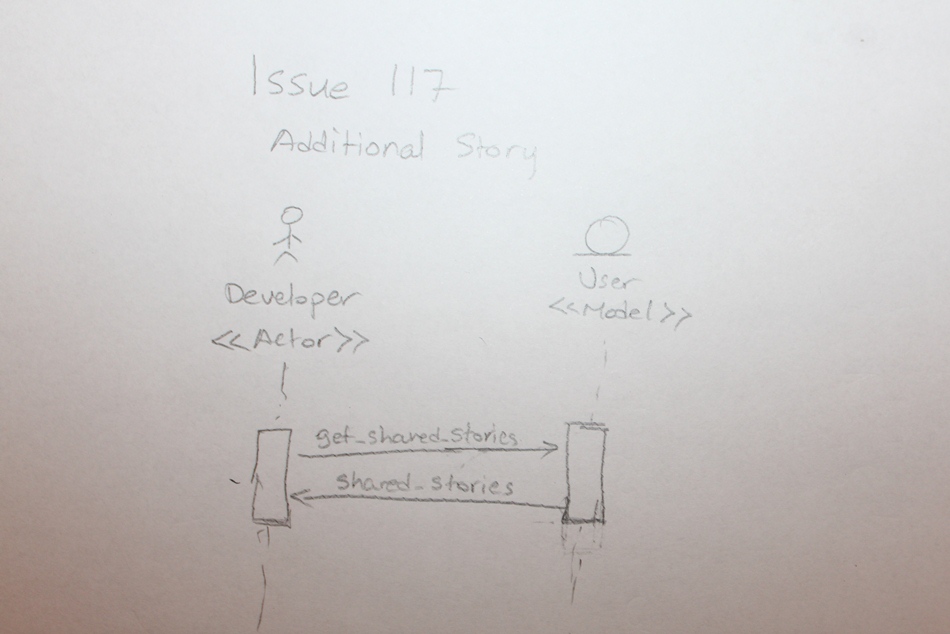 Issue 117
Additional Story
Developer
<<Actor>>
User
<<Model>>
get_shared_stories
shared_stories